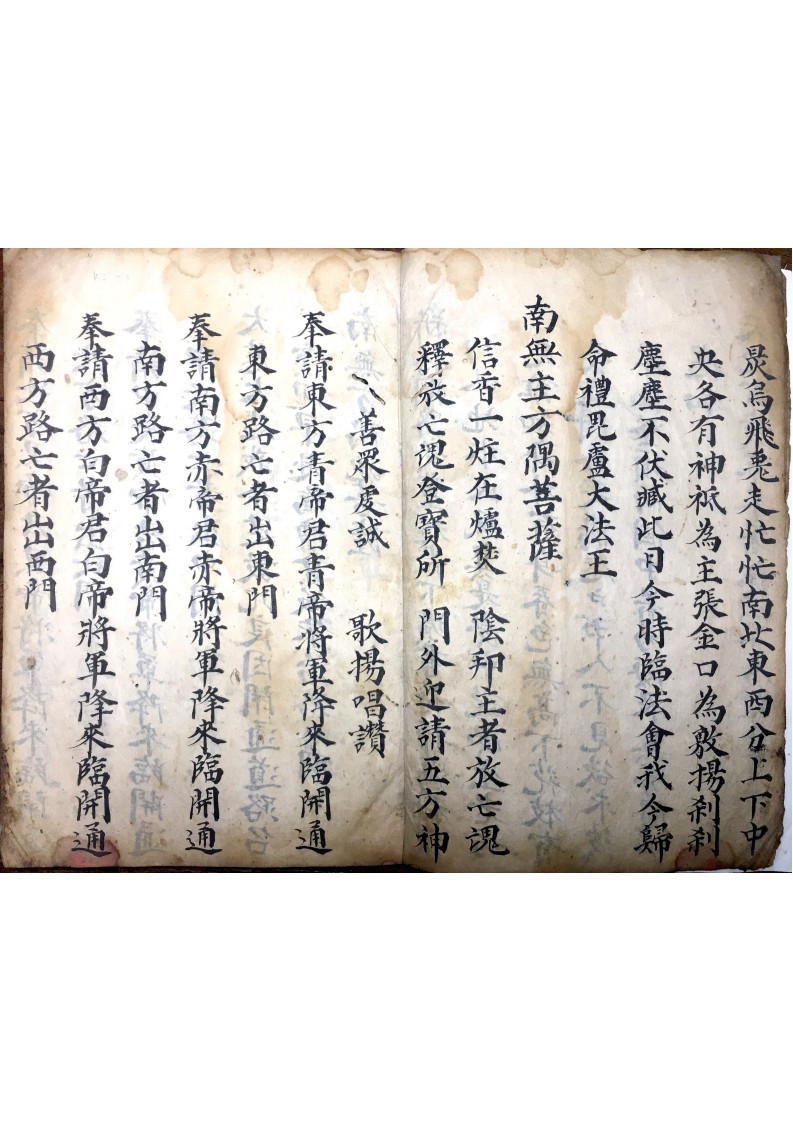 炅烏飛兎走忙忙南北東西分上下中
央各有神祇為主張金口為敷揚刹刹
塵塵不伏藏此日今時臨法會我今歸
命禮毘盧大法王
南無主方隅菩薩
信香一炷在爐焚 陰卯主者放亡魂
釋放亡魂登寶所 門外迎請五方神
善眾虔誠 歌揚唱讚
奉請東方青帝君青帝將軍降來臨開通
東方路亡者出東門
奉請南方赤帝君赤帝將軍降來臨開通
南方路亡者出南門
奉請西方白帝君白帝將軍降來臨開通
西方路亡者出西門